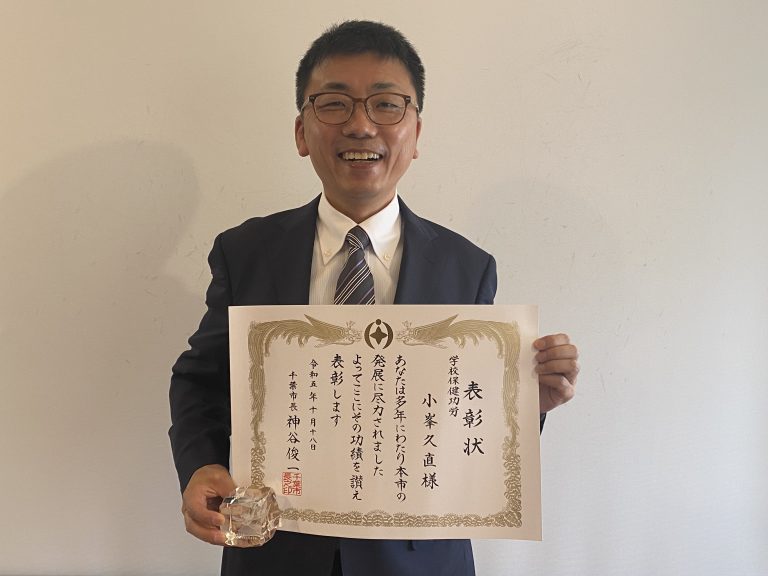 表彰状
学校保健功労
小峯久直様
あなたは多年にわたり本市の
発展に尽力されました
よってここにその功績を讃え
表彰します
令和五年十月十八日
千葉市長 神谷俊一
千葉市長之印